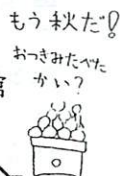 もう秋だ!
おつきみたべた
かい?